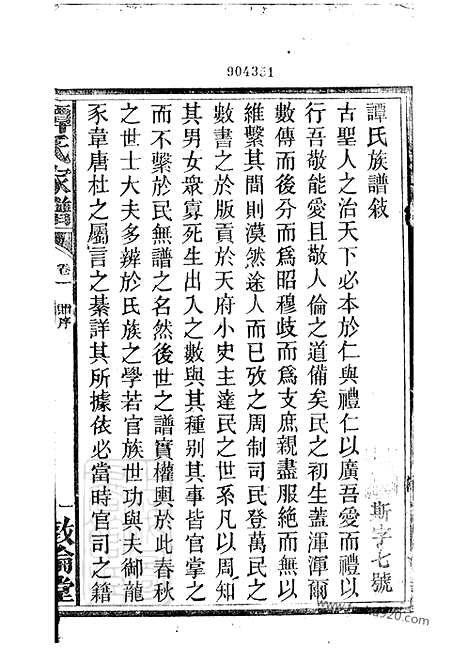 904331
譚氏族譜敍
古聖人之治天下必本於仁與禮仁以廣吾愛而禮以
行吾敬能愛且敬人倫之道備矣民之初生蓋渾渾爾
數傳而後分而爲昭穆歧而爲支庶親盡服絶而無以
維繫其間則漠然途人已攷之周制司民登萬民之
數書之於版貢於天府小史主達民之世系凡以周知
其男女衆寡死生出入之數與其種别其事皆官掌之
而不繫於民無譜之名然後世之譜實權輿於此春秋
之世士大夫多辨於氏族之學若官族世功與夫御龍
豕韋唐杜之屬言之綦詳其所據依必當時官司之籍
斯字七號
譚氏家譜
卷一
序
一
敦倫堂